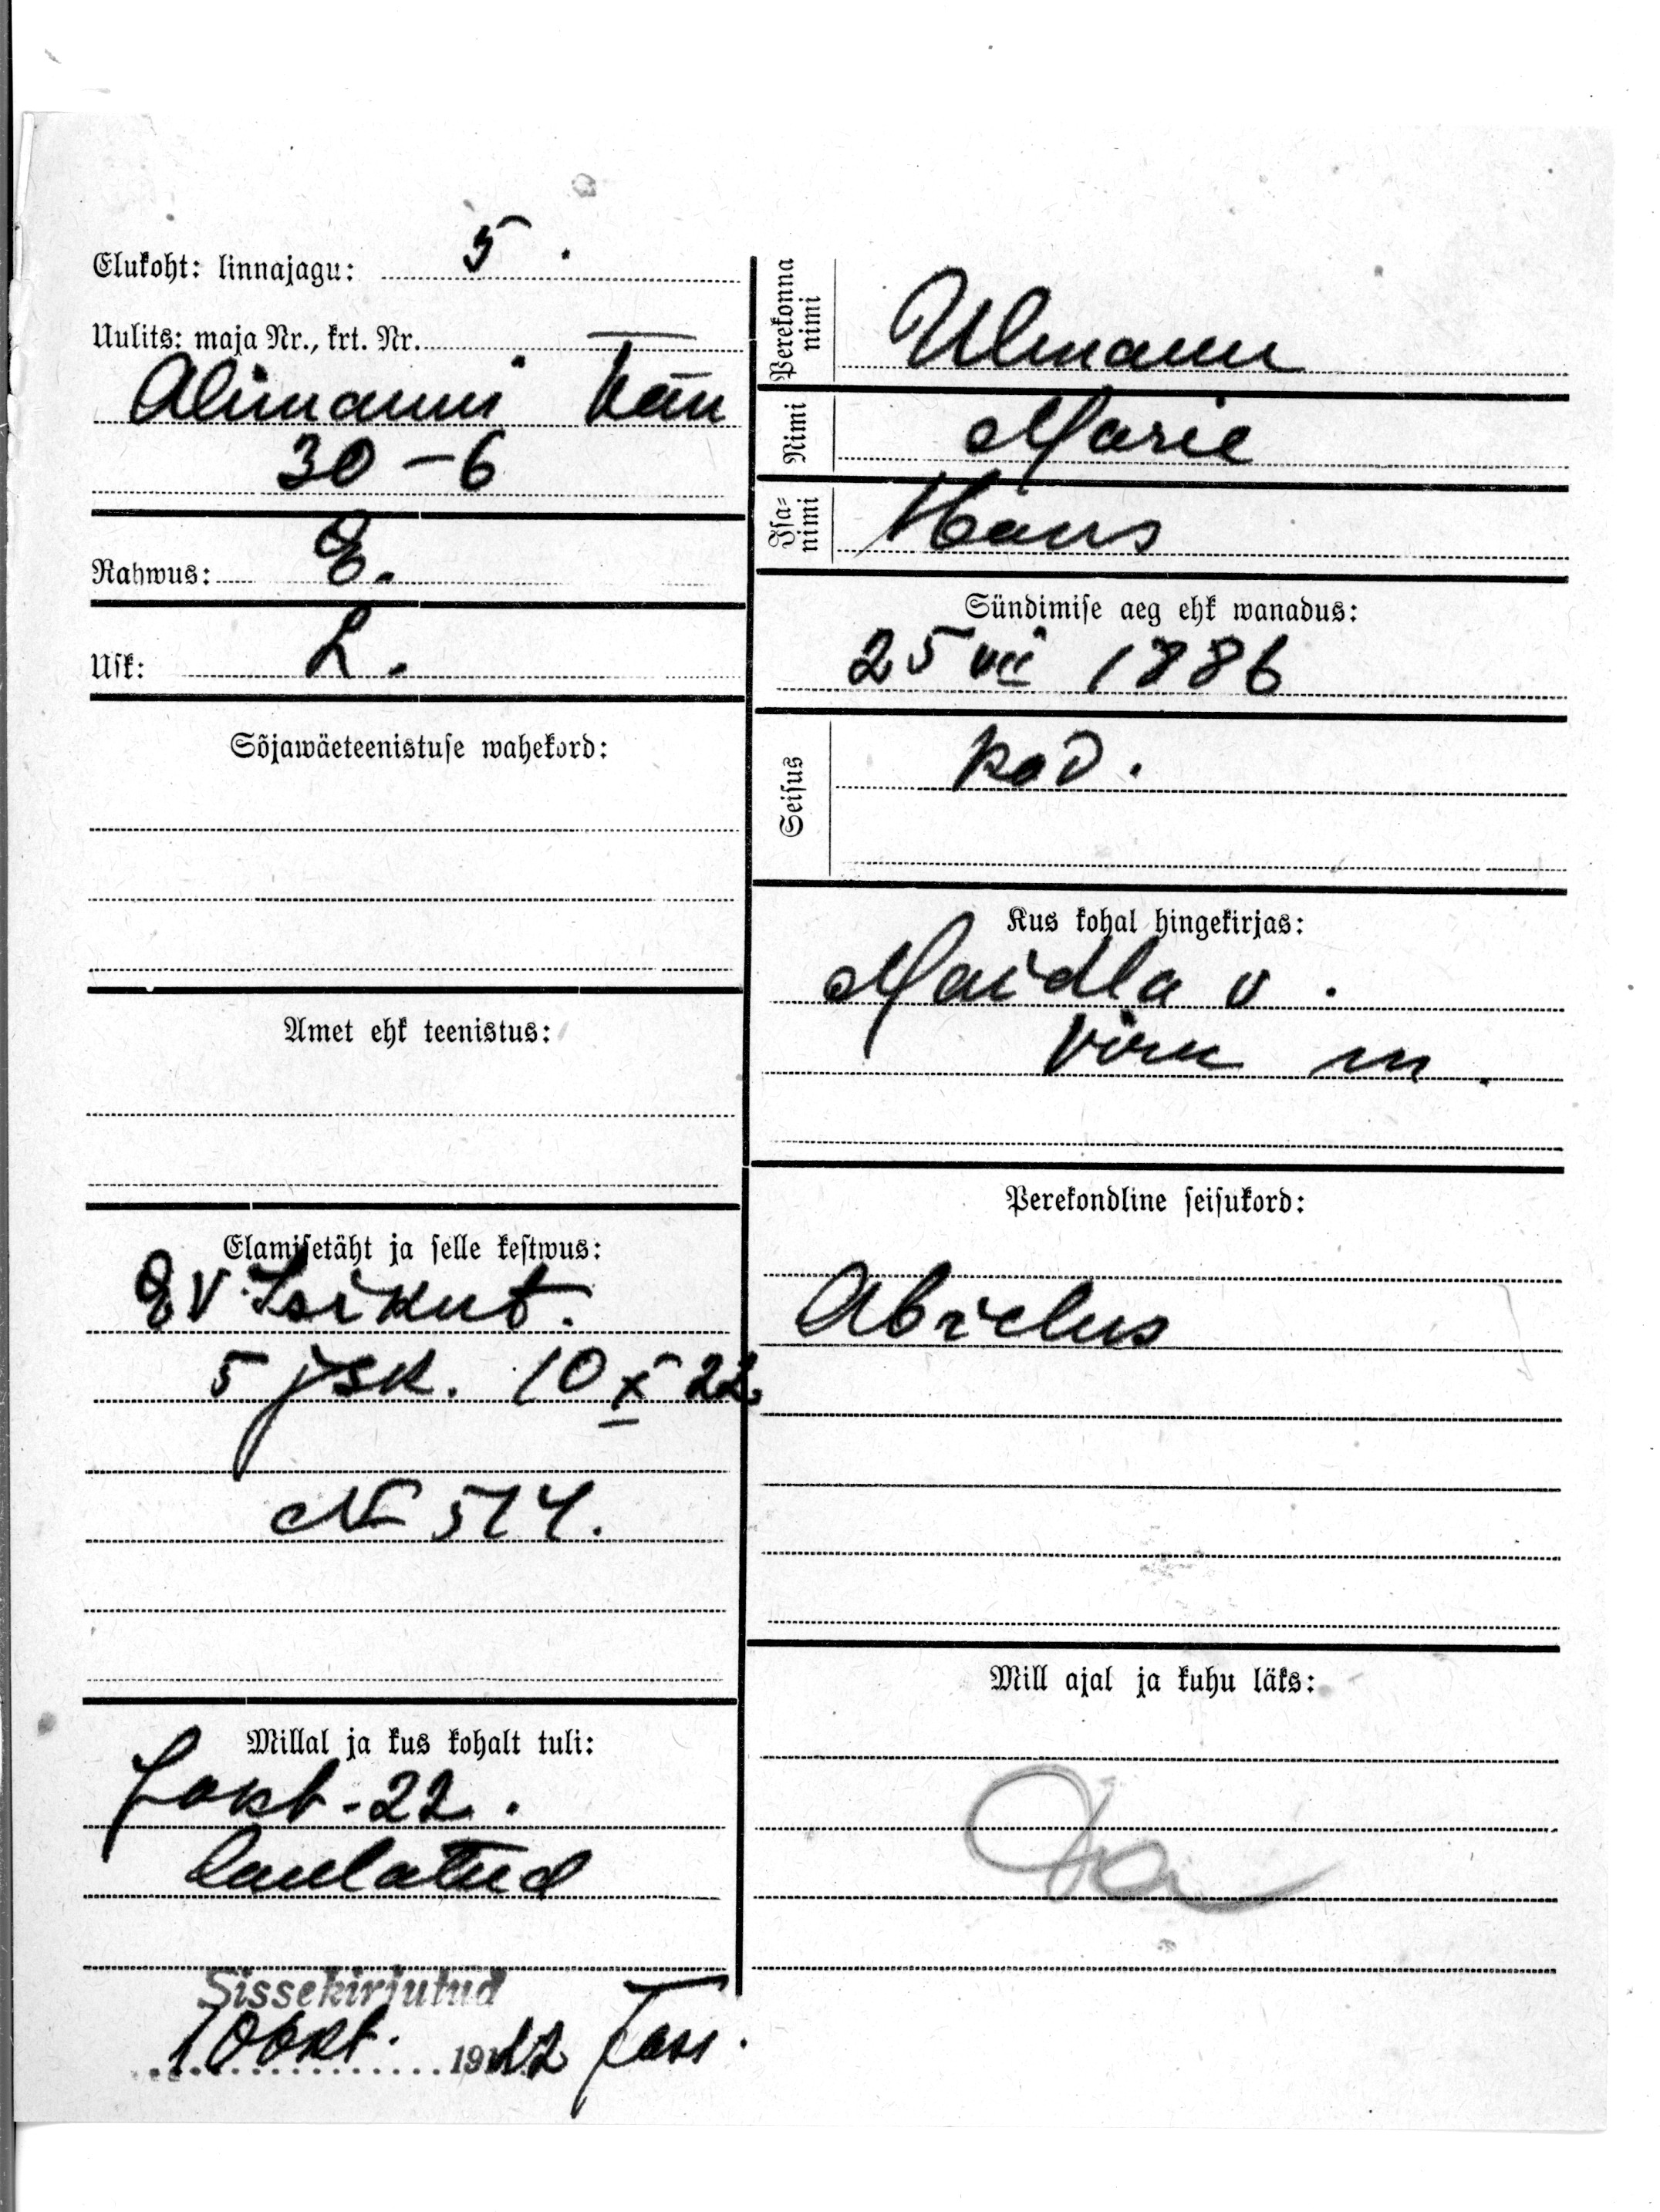 Elukoht: linnajagu: 5.
Uulits: maja Nr., krt. Nr.
Alimanni tän
30-6
Rahwus: E.
Usk: L.
Sõjawäeteenistuse wahekord:
Amet ehk teenistus:
Elamisetäht ja selle kestwus:
E V Isikut.
5 jsk. 10 X 22
№ 514.
Millal ja kus kohalt tuli:
7 okt-22.
laulatud
Sissekirjutud
10 okt. 1922
Perekonna nimi Ulmann
Nimi Marie
Isa-nimi Hans
Sündimise aeg ehk wanadus:
25 VII 1886
Seisus kod.
Kus kohal hingekirjas:
Maidla v.
Viru m.
Perekondline seisukord:
Abielus
Mill ajal ja kuhu läks: